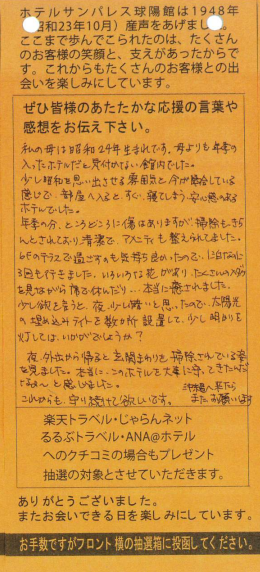 ホテルサンパレス球陽館は1948年
(昭和23年10月)産声をあげました。
ここまで歩んでこられたのは、たくさん
のお客様の笑顔と、支えがあったからで
す。これからもたくさんのお客様との出
会いを楽しみにしています。
ぜひ皆様のあたたかな応援の言葉や
感想をお伝え下さい。
私の母は昭和24年生まれです。母よりも年季の
入ったホテルだと見付かない館内でした。
少し昭和を思い出させる雰囲気と今が融合している
感じで、部屋へ入ると、すぐ、寝てしまう、安心感のある
ホテルでした。
年季の分、ところどころに傷はありますが、掃除もきち
んとされており、清潔で、アメニティも整えられてました。
6Fのテラスで過ごすのも気持ち良かったので、1泊なのに
3回も行きました。いろいろな花があり、たくさんの
を見ながら 傍で休んだり… 本当に癒されました。
少し欲を言うと、夜、少し暗いと思ったので、太陽光
の埋め込みライトを数か所 設置して、少し明かりを
灯しては、いかがでしょうか?
夜、外出から帰ると 玄関まわりを 掃除されている姿
を見ました。本当に、このホテルを大事に守ってきたんだ
なぁ〜と感じました。
これからも、守り続けて欲しいです。
沖縄へ来たら
また お願います
楽天トラベル・じゃらんネット
るるぶトラベル・ANA@ホテル
へのクチコミの場合もプレゼント
抽選の対象とさせていただきます。
ありがとうございました。
またお会いできる日を楽しみにしています。
お手数ですがフロント横の抽選箱に投函してください。